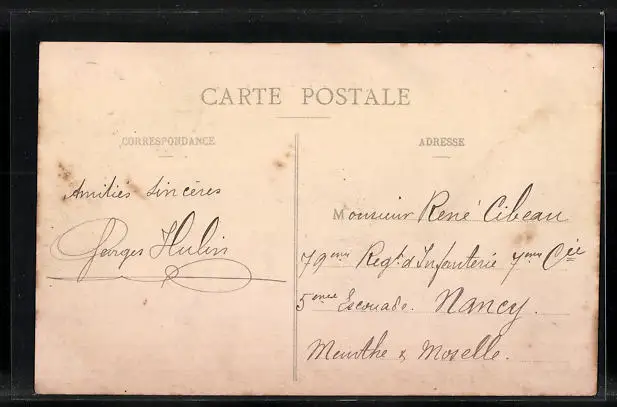 CARTE POSTALE
CORRESPONDANCE
Amitiés Sincères
Georges Hulin
ADRESSE
Monsieur René Cibeau
79eme Regt d'Infanterie 7eme Cie
5eme Escouade. Nancy.
Meurthe & Moselle.